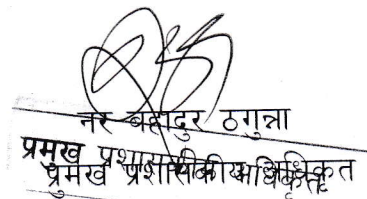 नर बहादुर ठगुन्ना
प्रमुख प्रशासकीय अधिकृत
प्रमुख प्रशासकीय अधिकृत